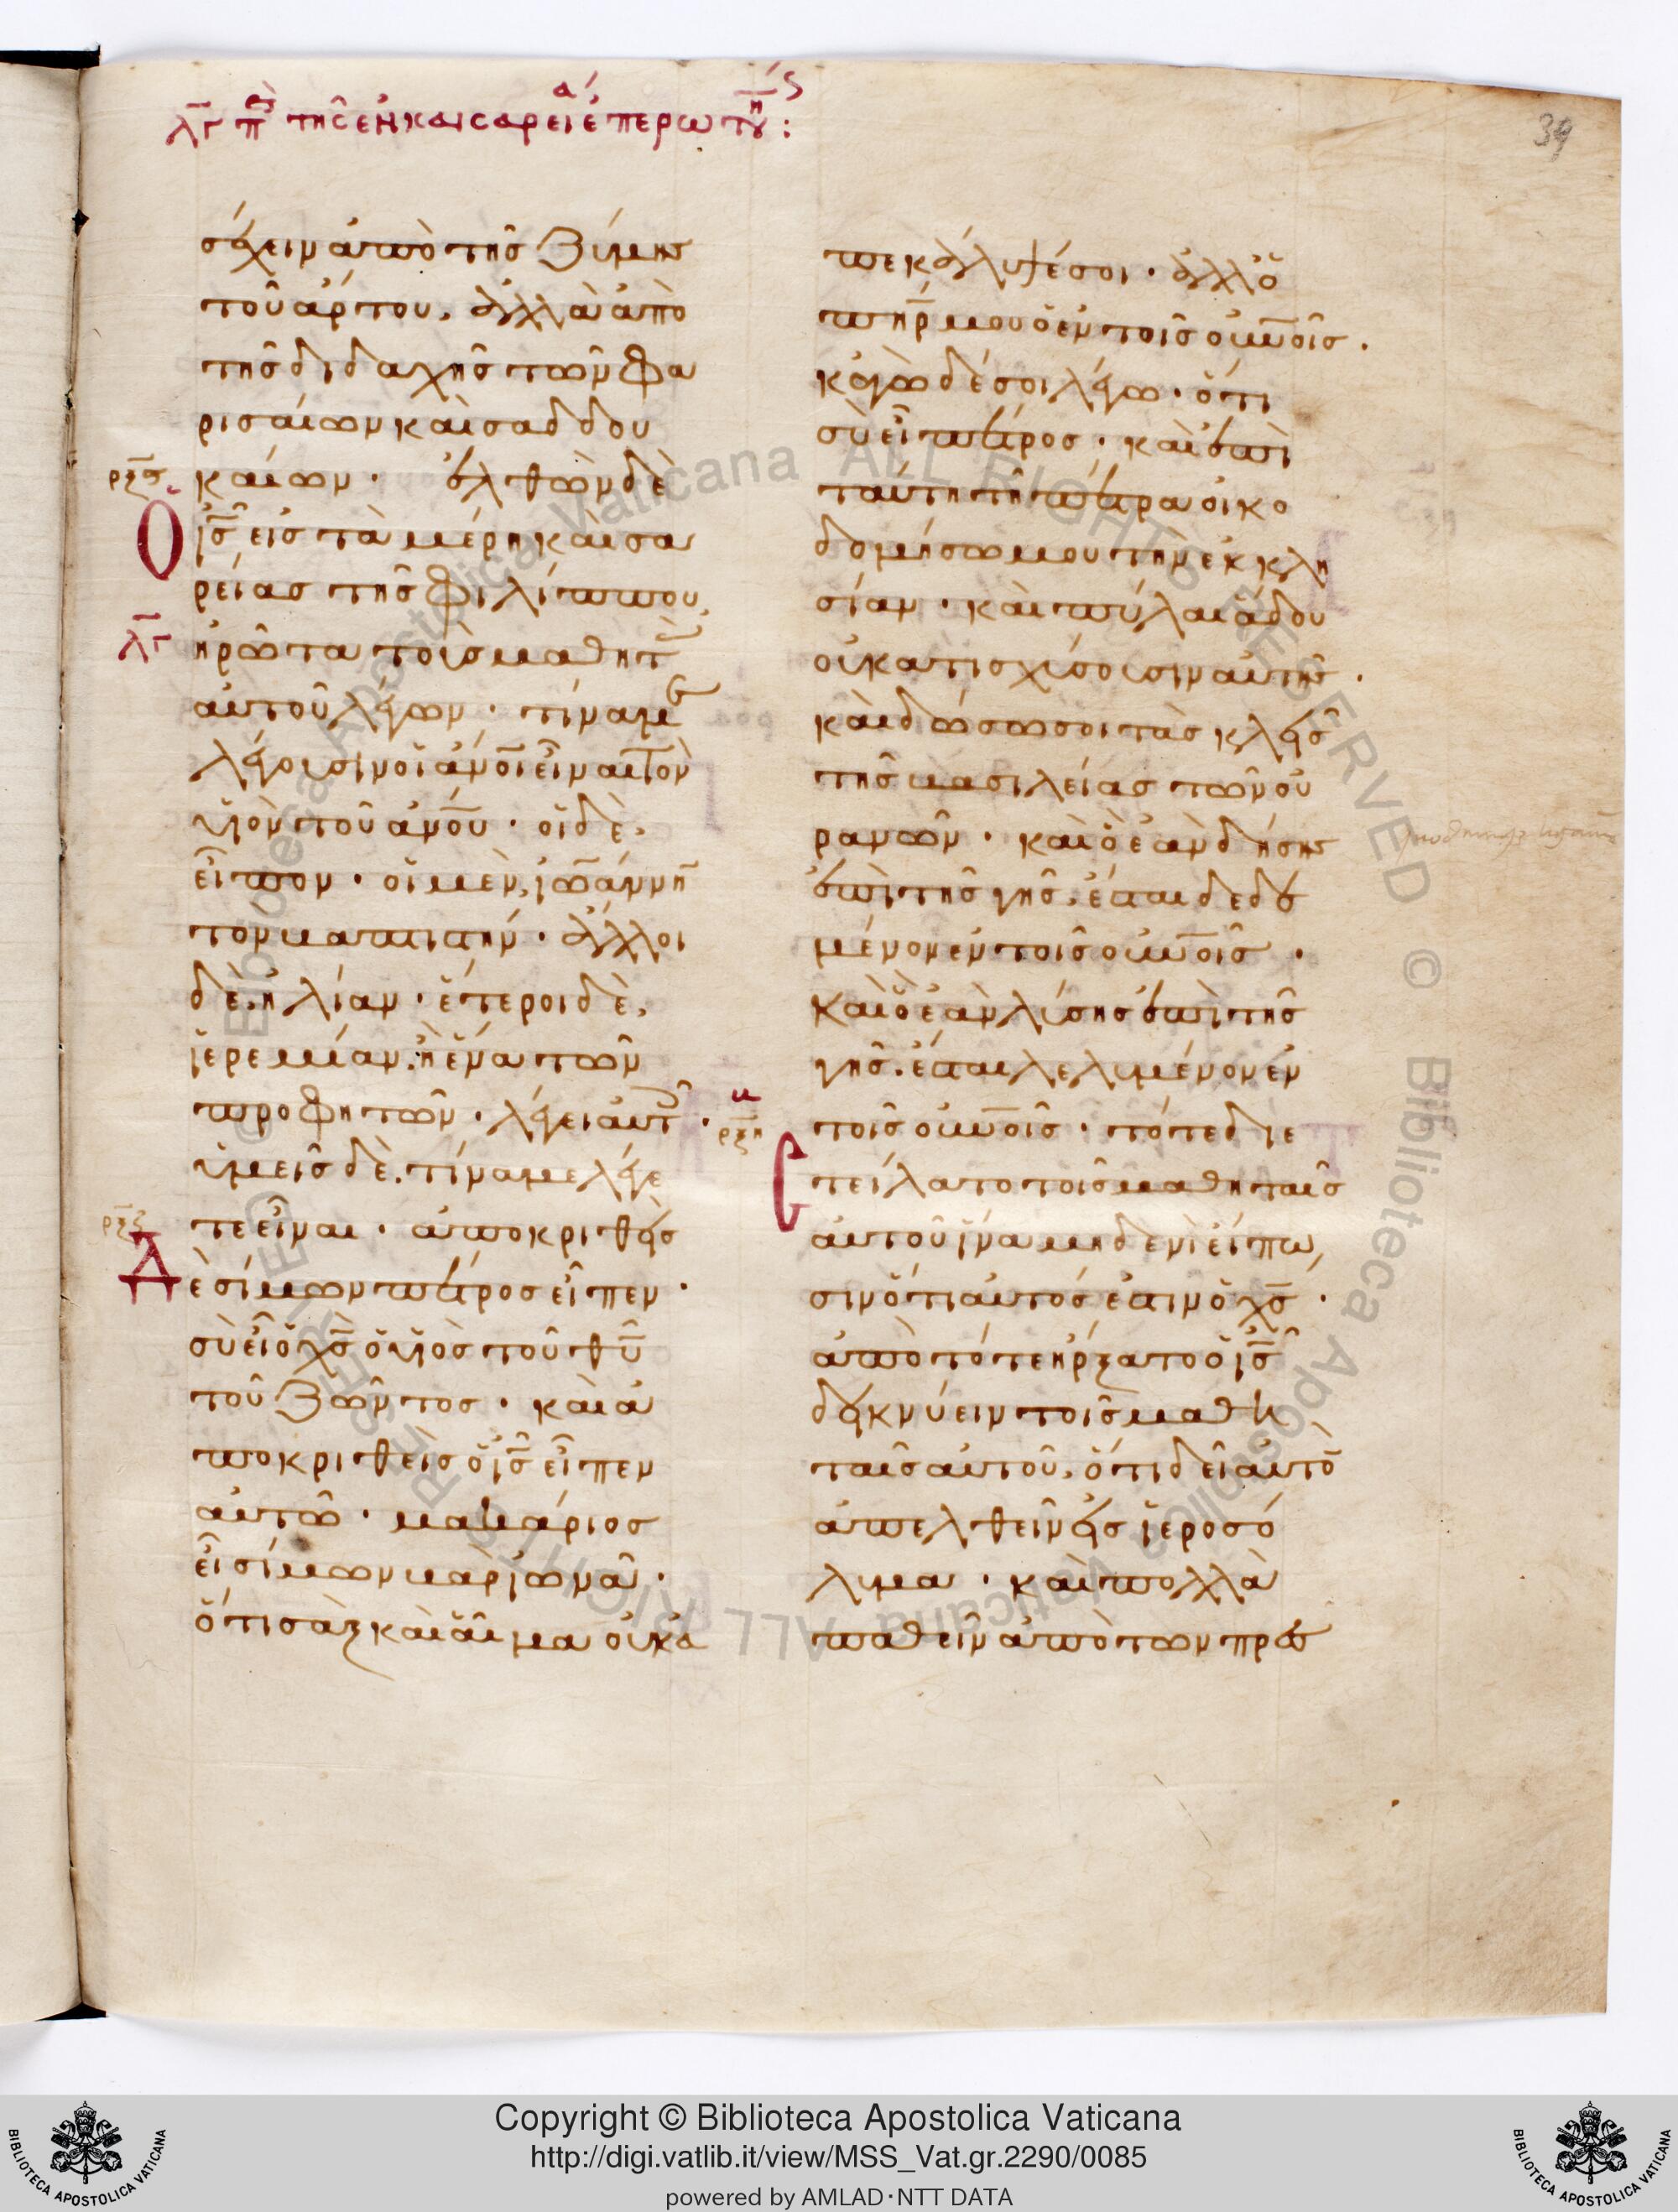 λγ πε της ἐν καισαρεία ἐπερωτήσ :
39
σέχειν ἀπὸ τῆς ζύμης
τοῦ ἄρτου, ἀλλὰ ἀπὸ
τῆς διδαχῆς τῶν φα
ρισαίων καὶ σαδδου
ρξϛ
καίων · ἐλθὼν δὲ
Ὁ ἰς εἰς τὰ μέρη καισα
ρείας τῆς φιλίππου,
λγ
ἠρώτα τοὺς μαθητ
αὐτοῦ λέγων · τίνα με
λέγουσιν οἱ ἀνοι εἶναι τὸν
υἱὸν τοῦ ἀνου · οἱ δὲ,
εἶπον · οἱ μὲν, ἰωάννην
τὸν βαπτιστήν · ἄλλοι
δὲ, ἠλίαν · ἕτεροι δὲ,
ἱερεμίαν, ἢ ἕνα τῶν
προφητῶν · λέγει αὐτ ·
ὑμεῖς δὲ, τίνα με λέγε
ρξζ
τε εἶναι · ἀποκριθεὶς
Δ ὲ σίμων πέτρος εἶπεν ·
σὺ εἶ ὁ χς ὁ υἱὸς τοῦ θυ
τοῦ ζῶντος · καὶ ἀ
ποκριθεὶς ὁ ἰς εἶπεν
αὐτῶ · μακάριος
εἶ σίμων βὰρ ἰωνᾶ ·
ὅτι σὰρξ καὶ αἷμα οὐκ ἀ
πεκάλυψέ σοι · ἀλλ ὁ
πηρ μου ὁ ἐν τοῖς οὐνοις ·
κἀγὼ δέ σοι λέγω · ὅτι
σὺ εἶ πέτρος · καὶ ἐπὶ
ταύτη τῆ πέτρα οἰκο
δομήσω μου τὴν ἐκκλη
σίαν · καὶ πύλαι ἅδου
οὐ κατισχύσουσιν αὐτῆς ·
καὶ δώσω σοι τὰς κλεῖς
τῆς βασιλείας τῶν οὐ
ρανῶν · καὶ ὃ ἐὰν δήσης
ἐπὶ τῆς γῆς, ἔσται δεδε
μένον ἐν τοῖς οὐνοις ·
καὶ ὃ ἐὰν λύσης ἐπὶ τῆς
γῆς, ἔσται λελυμένον ἐν
ρξη
τοῖς οὐνοις · τότε διε
ϛ τείλατο τοῖς μαθηταῖς
αὐτοῦ ἵνα μηδενὶ εἴπω
σιν ὅτι αὐτός ἐστιν ὁ χς ·
ἀπὸ τότε ἤρξατο ὁ ἰς
δεικνύειν τοῖς μαθη
ταῖς αὐτοῦ, ὅτι δεῖ αὐτὸ
ἀπελθεῖν εἰς ἱεροσό
λυμα · καὶ πολλὰ
παθεῖν ἀπὸ τῶν πρεσ
Copyright © Biblioteca Apostolica Vaticana
http://digi.vatlib.it/view/MSS_Vat.gr.2290/0085
powered by AMLAD·NTT DATA
BIBLIOTECA APOSTOLICA VATICANA
BIBLIOTECA APOSTOLICA VATICANA